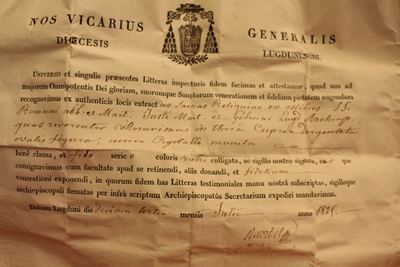 NOS VICARIUS GENERALIS
DIŒCESIS LUGDUNENSIS.
UNIVERSIS et singulis præsentes Litteras inspecturis fidem facimus et attestamur, quod nos ad
majorem Omnipotentis Dei gloriam, suorumque Sanctorum venerationem et fidelium pietatem augendam
recognovimus ex authenticis locis extract as Sacras Reliquias ex ossibus SS.
Romani abb. et Mart. Justi Mart. et
quas reverenter collocavimus in theca Cuprea
ovalis figuræ, unico Crystallo munita
bene clausa, et filo seric o coloris rubri colligata, ac sigillo nostro signata, eas que
consignavimus cum facultate apud se retinendi, aliis donandi, et fidelium
venerationi exponendi, in quorum fidem has Litteras testimoniales manu nostrâ subscriptas, sigilloque
archiepiscopali firmatas per infrà scriptum Archiepiscopatûs Secretarium expediri mandavimus.
Datum Lugduni die decima tertia mensis Julii anno 1825.